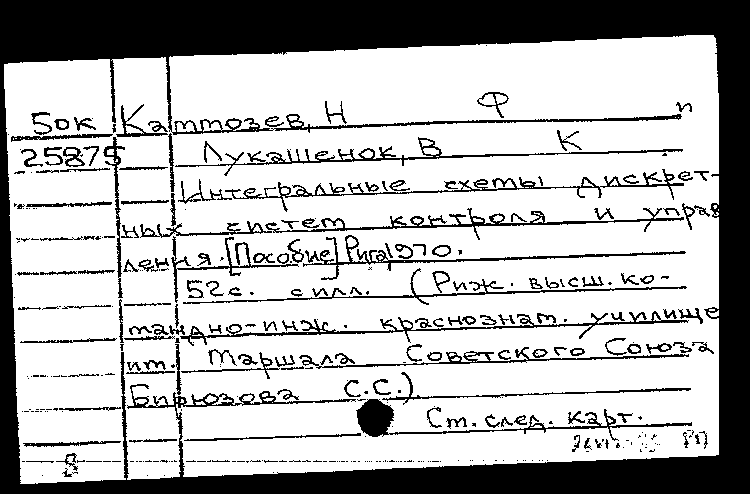 50к Каттозев, Н Ф п
25875 Лукашенок, В К
Интегральные схемы дискрет-
ных систем контроля и управ
ления. [Пособие] Рига, 1970.
52с. с илл. (Риж. высш. ко-
мандно-инж. краснознам. училище
им. Маршала Советского Союза
Бирюзова С.С.)
См. след. карт.
РП
8